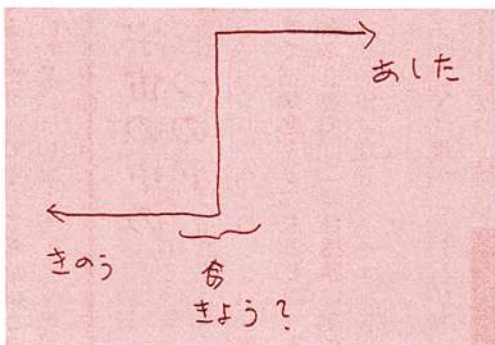 あした
きのう
きょう?